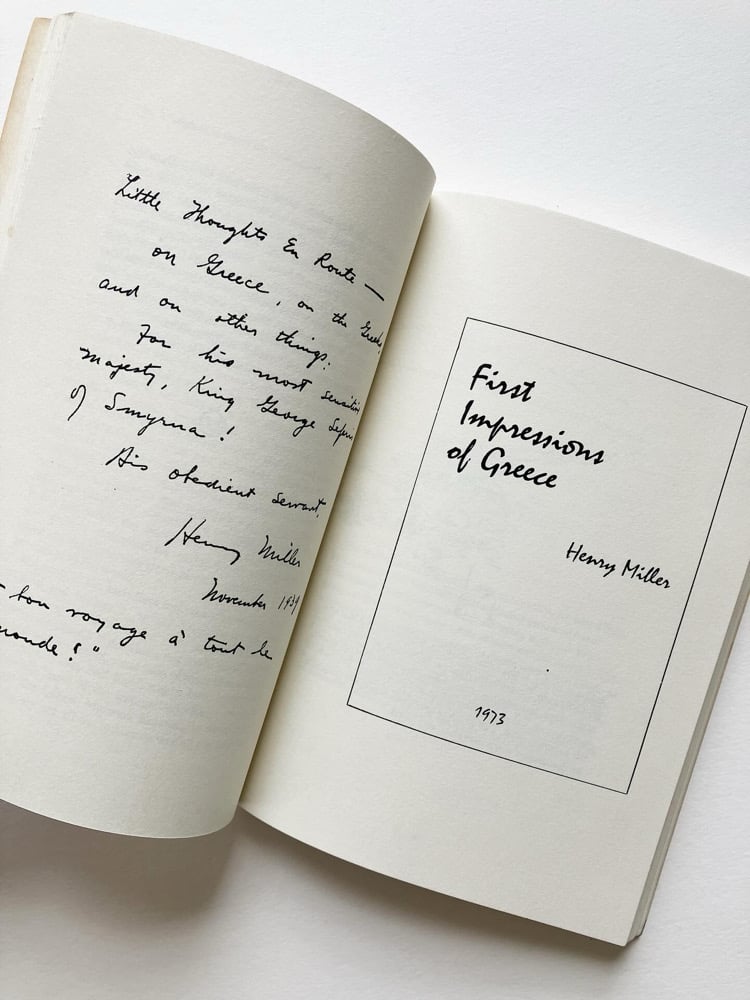 Little Thoughts En Route —
on Greece, on the Greeks,
and on other things:
For his most
majesty, King George
of Smyrna!
His obedient servant,
Henry Miller
November 1939
bon voyage à tout le
monde!"
First
Impressions
of Greece
Henry Miller
1973